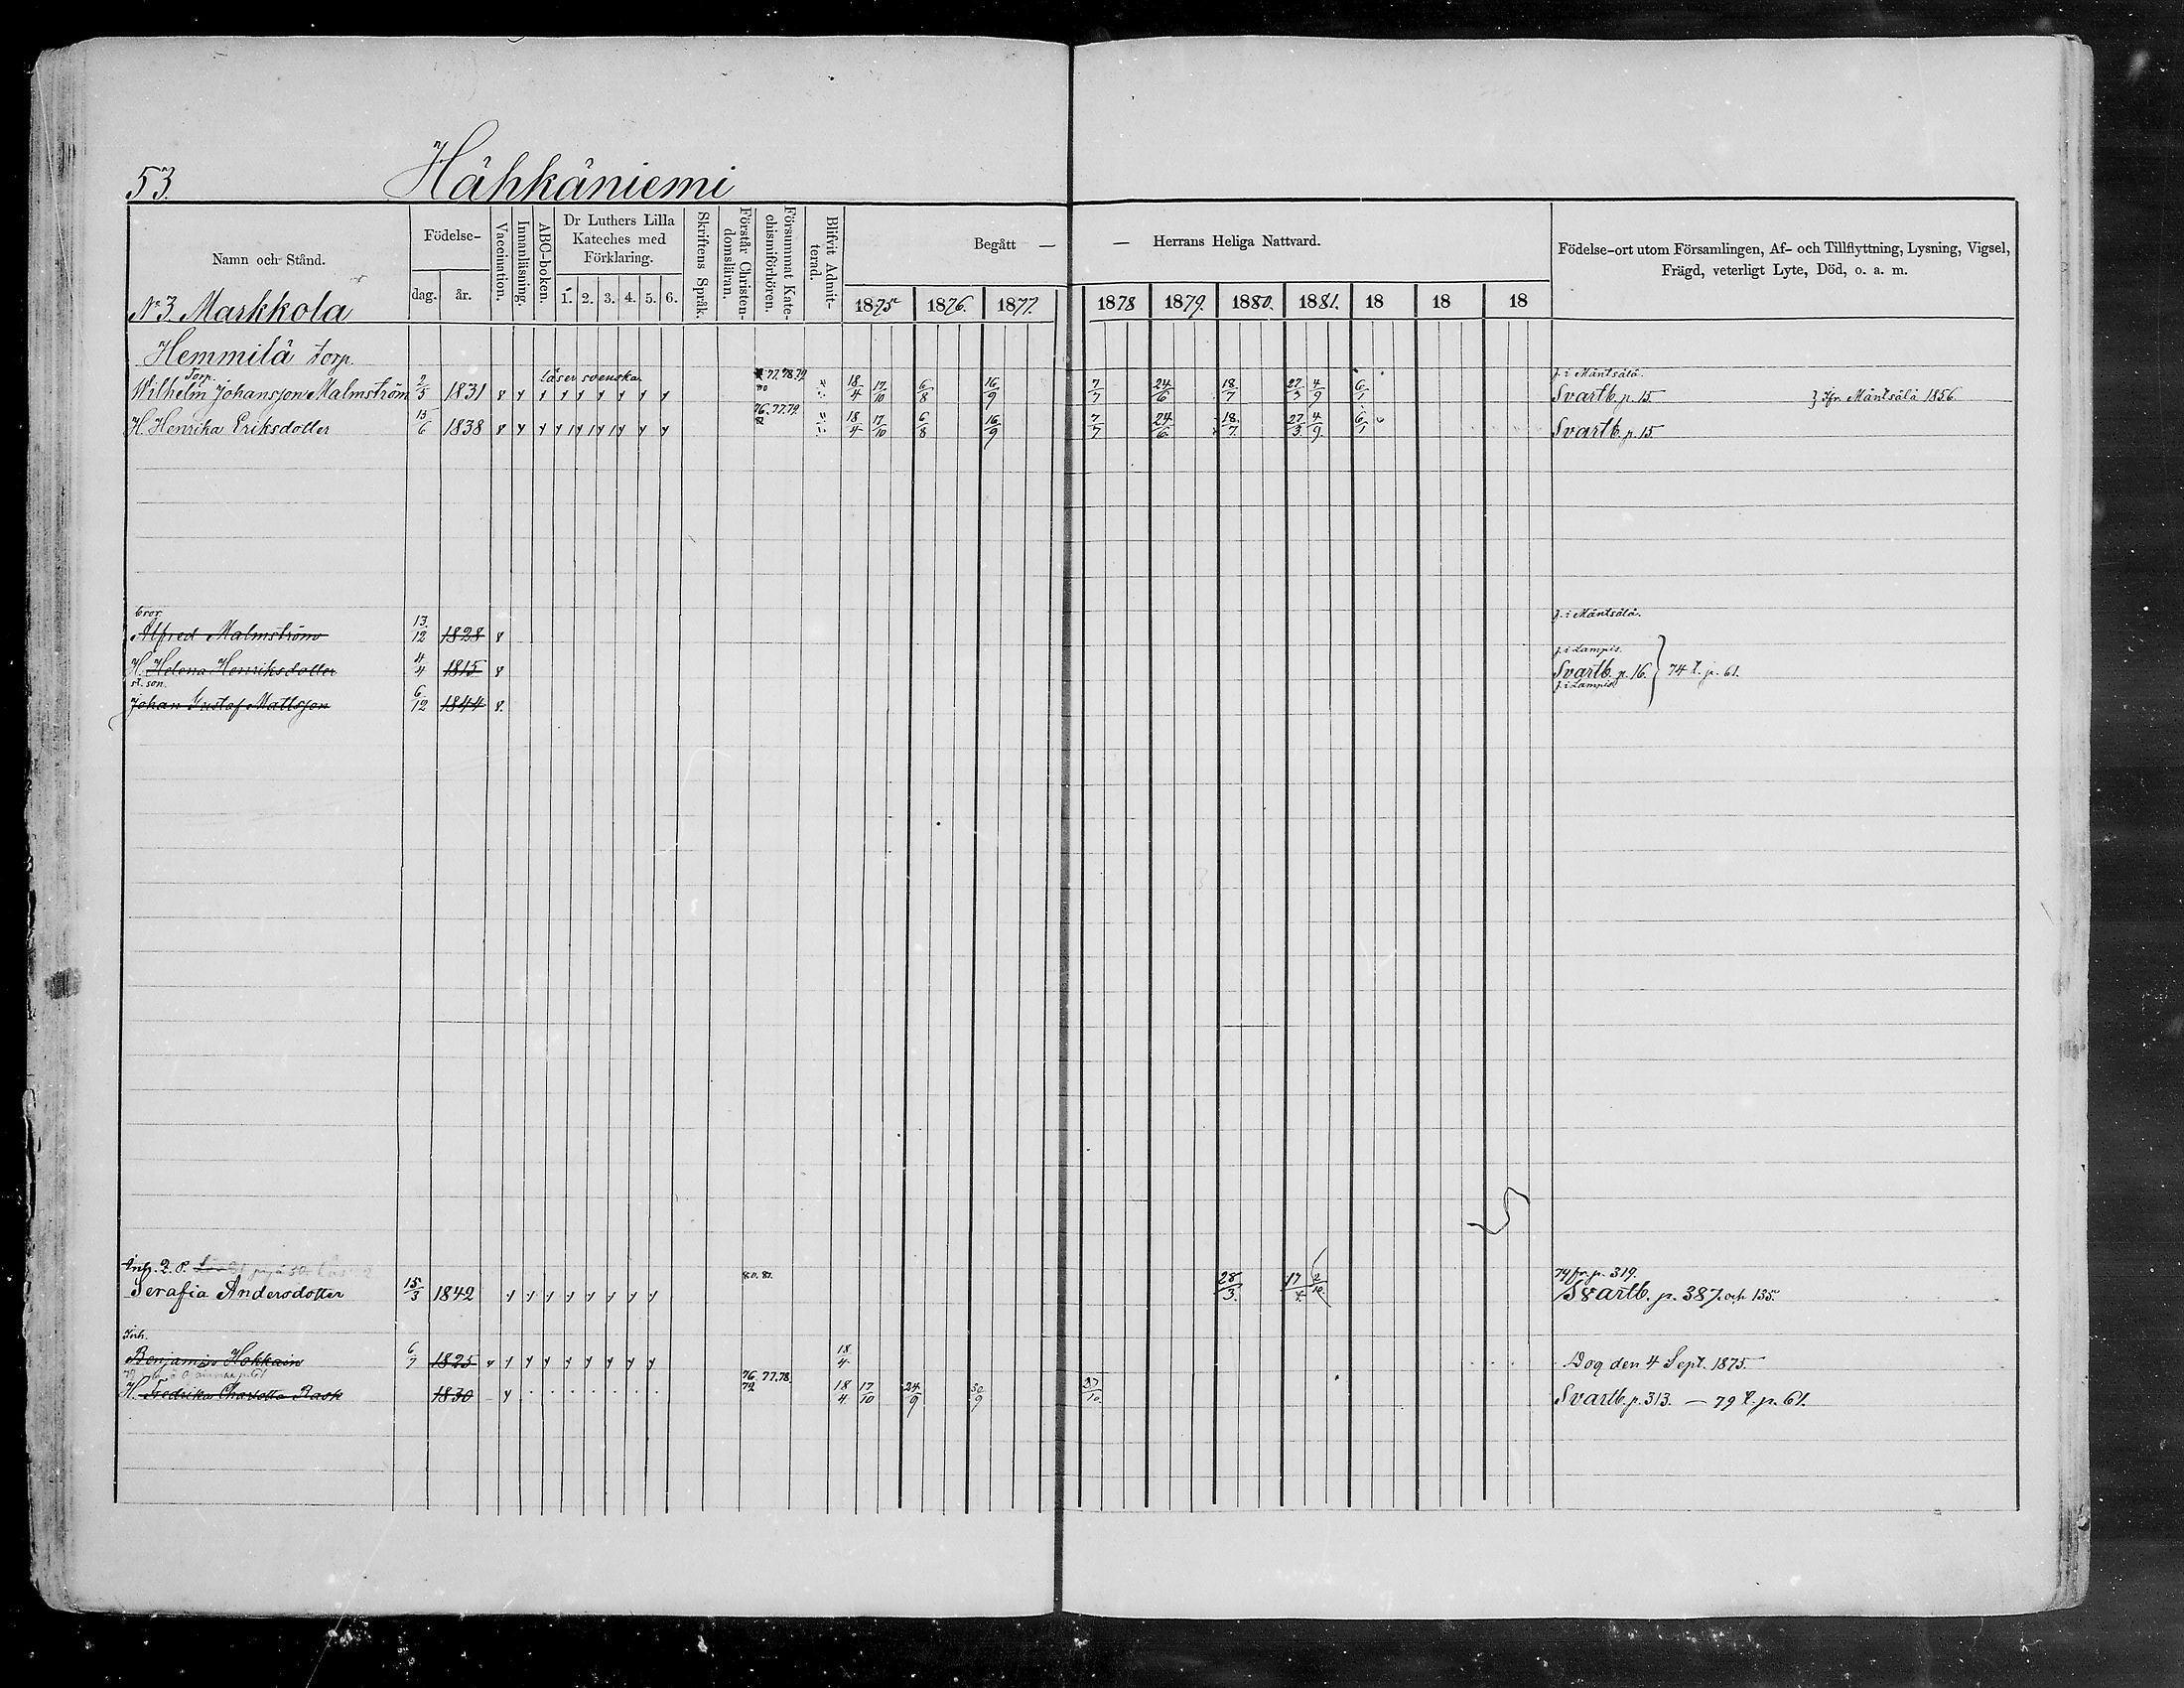 53. Hähkäniemi
Namn och Stånd. Födelse- dag. år. Vaccination. Innanläsning. ABC-boken. Dr Luthers Lilla Kateches med Förklaring. 1. 2. 3. 4. 5. 6. Skriftens Språk. Förstår Christendomsläran. Försummat Katechismiförhören. Blifvit Admitterad. Begått — — Herrans Heliga Nattvard. Födelse-ort utom Församlingen, Af- och Tillflyttning, Lysning, Vigsel, Frägd, veterligt Lyte, Död, o. a. m.
1875 1876. 1877. 1878 1879. 1880. 1881. 18 18 18
No 3 Markkola
Hemmilä torp.
Torp. läser svenska 77.78.79 f. i Mäntsälä.
Wilhelm Johansson Malmström 2/5 1831 18/4 17/10 6/8 16/9 7/7 24/6 18/7 27/3 4/9 6/1 Svartb. p. 15. } Ifr. Mäntsälä 1856
76.77.79
H. Henrika Eriksdotter 15/6 1838 18/4 17/10 6/8 16/9 7/7 24/6 18/7. 27/3. 4/9. 6/1 Svartb. p. 15.
bror f. i Mäntsälä.
Alfred Malmström 13./12 1828
f. i Lampis.
H. Helena Henriksdotter 4/4 1815 Svartb. p. 16. } 74 t. p. 61.
st. son. f. i Lampis
Johan Gustaf Mattsson 6/12 1844
Inh. 80. 81. 79 fr. p. 319.
Serafia Andersdotter 15/3 1842 28/3. 17/4. 2/10. Svartb. p. 387. och 135.
Inh.
Benjamin Hokkain 6/7 1825 18/4. Dog den 4 Sept. 1875.
76. 77.78. 79
H. Fredrika Charlotta Rask 1830 18/4. 17/10 24/9 30/9 27/10. Svartb. p. 313. — 79 t. p. 61.